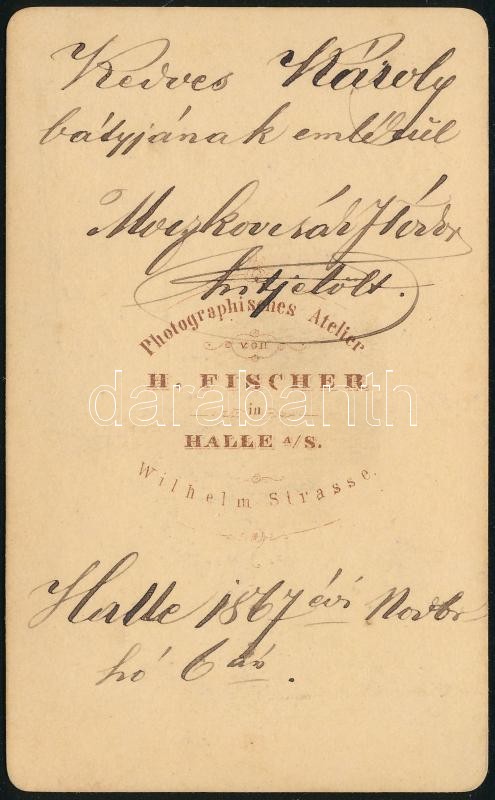 Kedves Károly
bátyjának emlékűl
hitjelölt.
Photographisches Atelier
von
H. FISCHER
in
HALLE a/S.
Wilhelm Strasse.
darabanth
Halle 1867 évi Novbr
hó 6 án.